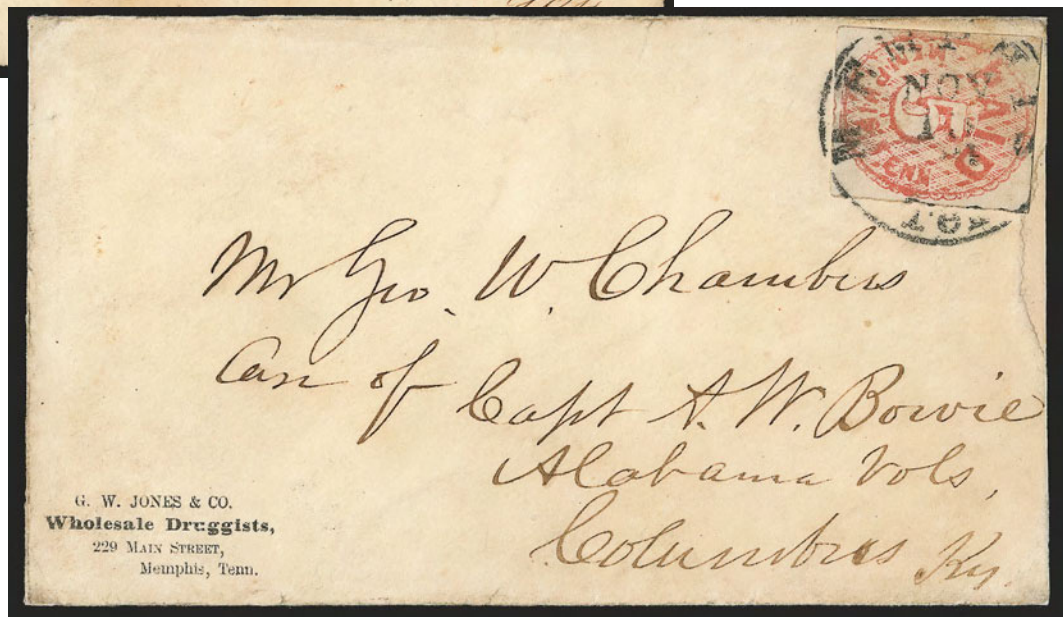 MEMPHIS
NOV
PAID
MEMPHIS
5
TENN
Mr Geo. W. Chambers
Care of
Capt A. W. Bowie
Alabama Vols,
Columbus Ky.
G. W. JONES & CO.
Wholesale Druggists,
229 MAIN STREET,
Memphis, Tenn.